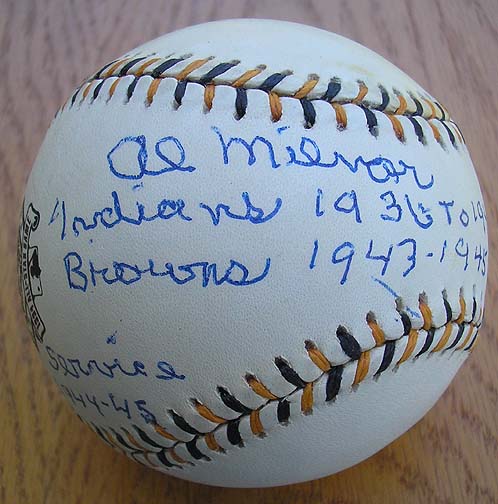 Al Milnar
Indians 1936 To 19
Browns 1943-1945
Service
1944-45